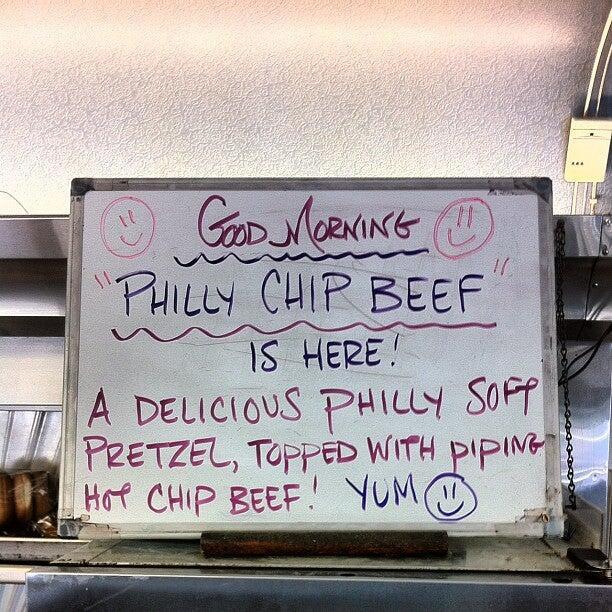 GOOD MORNING
"PHILLY CHIP BEEF"
IS HERE!
A DELICIOUS PHILLY SOFT
PRETZEL, TOPPED WITH PIPING
HOT CHIP BEEF! YUM